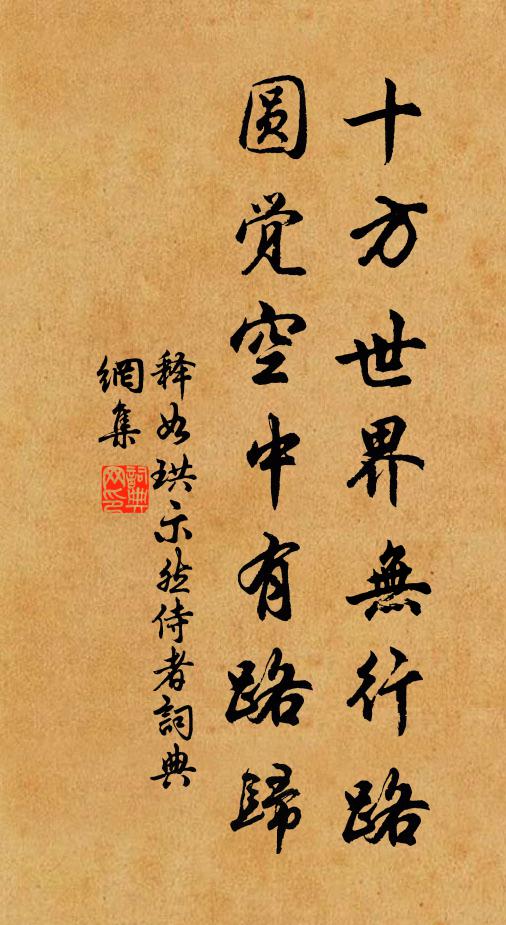 十方世界無行路
圆觉空中有路歸
释如珙示然侍者詞典
網集
詞典網印